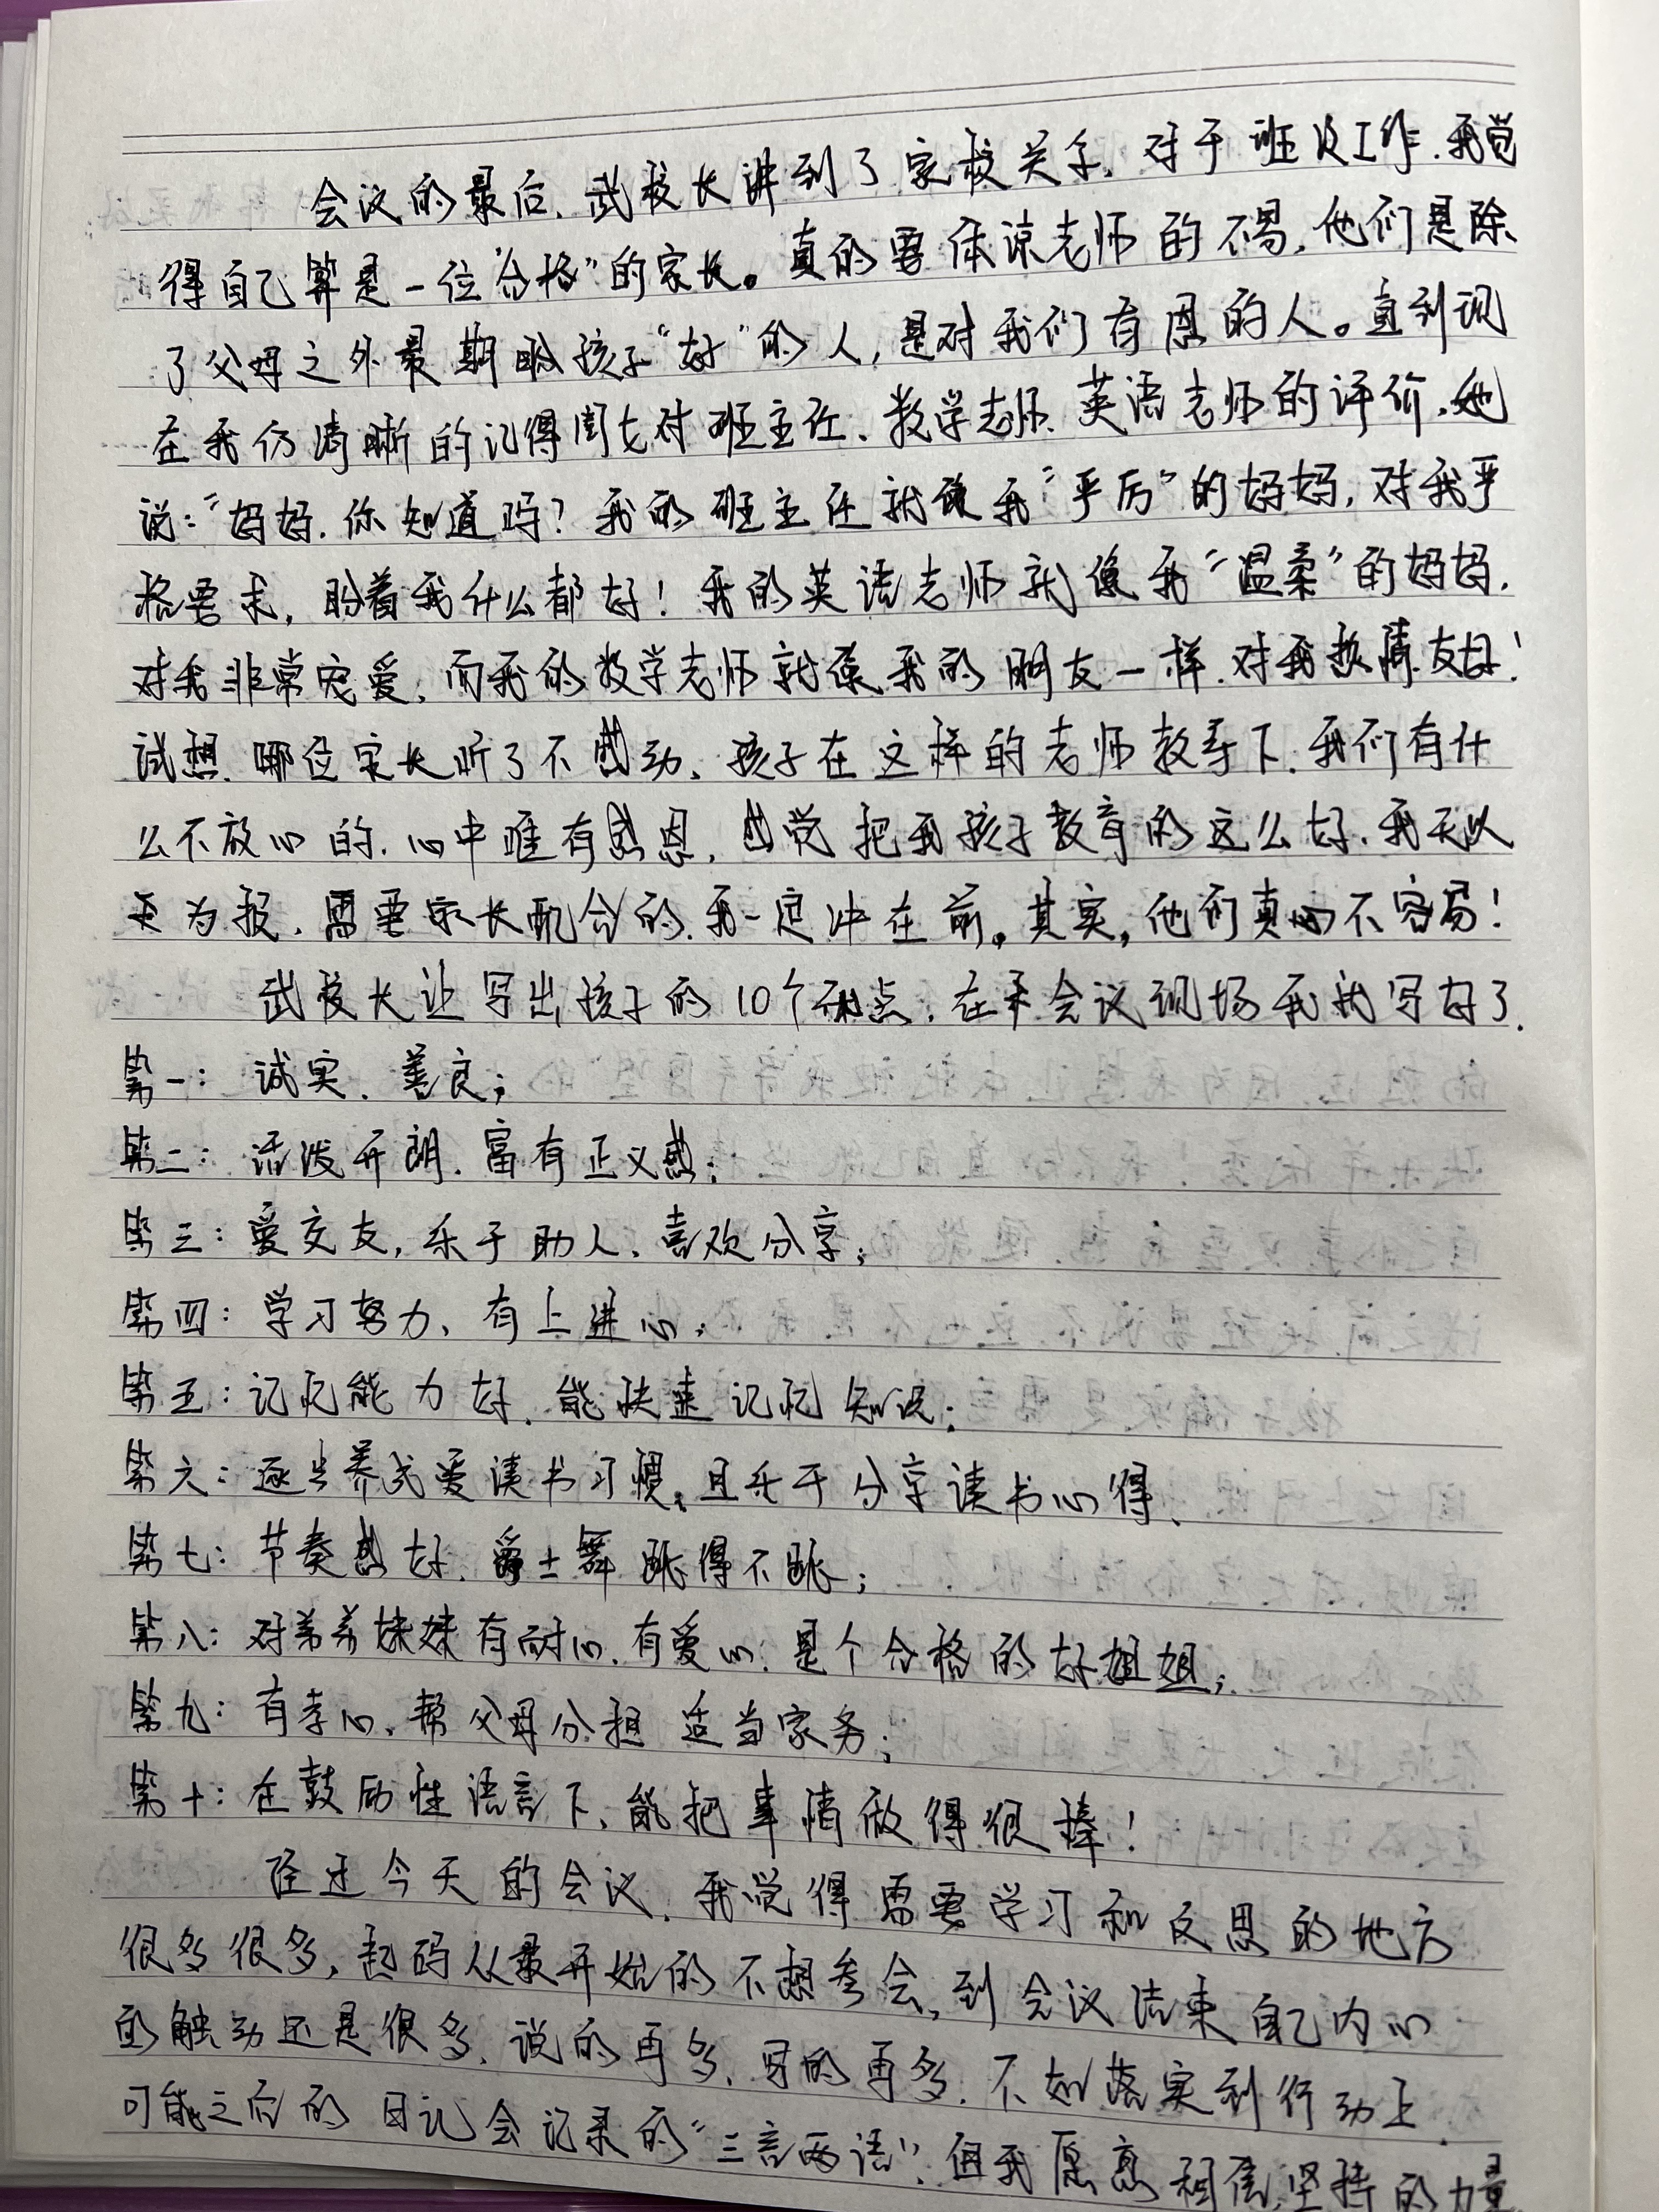 会议的最后、武校长讲到了家校关系，对于班级工作，我觉
得自己算是一位"合格"的家长。真的要体谅老师的不易，他们是除
了父母之外最期盼孩子"好"的人，是对我们有恩的人。直到现
在我仍清晰的记得闺女对班主任、数学老师、英语老师的评价，她
说："妈妈，你知道吗？我的班主任就像我"严厉"的妈妈，对我严
格要求，盼着我什么都好！我的英语老师就像我"温柔"的妈妈，
对我非常宠爱，而我的数学老师就像我的朋友一样，对我热情友好！
试想，哪位家长听了不感动，孩子在这样的老师教导下，我们有什
么不放心的，心中唯有感恩，感觉把我孩子教育的这么好，我无以
为报，需要家长配合的，我一定冲在前。其实，他们真的不容易！
武校长让写出孩子的10个优点，在会议现场我就写好了．
第一：诚实、善良；
第二：活泼开朗、富有正义感；
第三：爱交友，乐于助人、喜欢分享；
第四：学习努力、有上进心；
第五：记忆能力好、能快速记忆知识；
第六：逐步养成爱读书习惯，且乐于分享读书心得、
第七：节奏感好、爵士舞跳得不跳；
第八：对弟弟妹妹有耐心、有爱心，是个合格的好姐姐；
第九：有孝心、帮父母分担适当家务；
第十：在鼓励性语言下、能把事情做得很棒！
经过今天的会议，我觉得需要学习和反思的地方
很多很多，起码从最开始的不想参会，到会议结束自己内心
的触动还是很多，说的再多、写的再多，不如落实到行动上．
可能之后的日记会记录的"三言两语"，但我愿意相信，坚持的力量